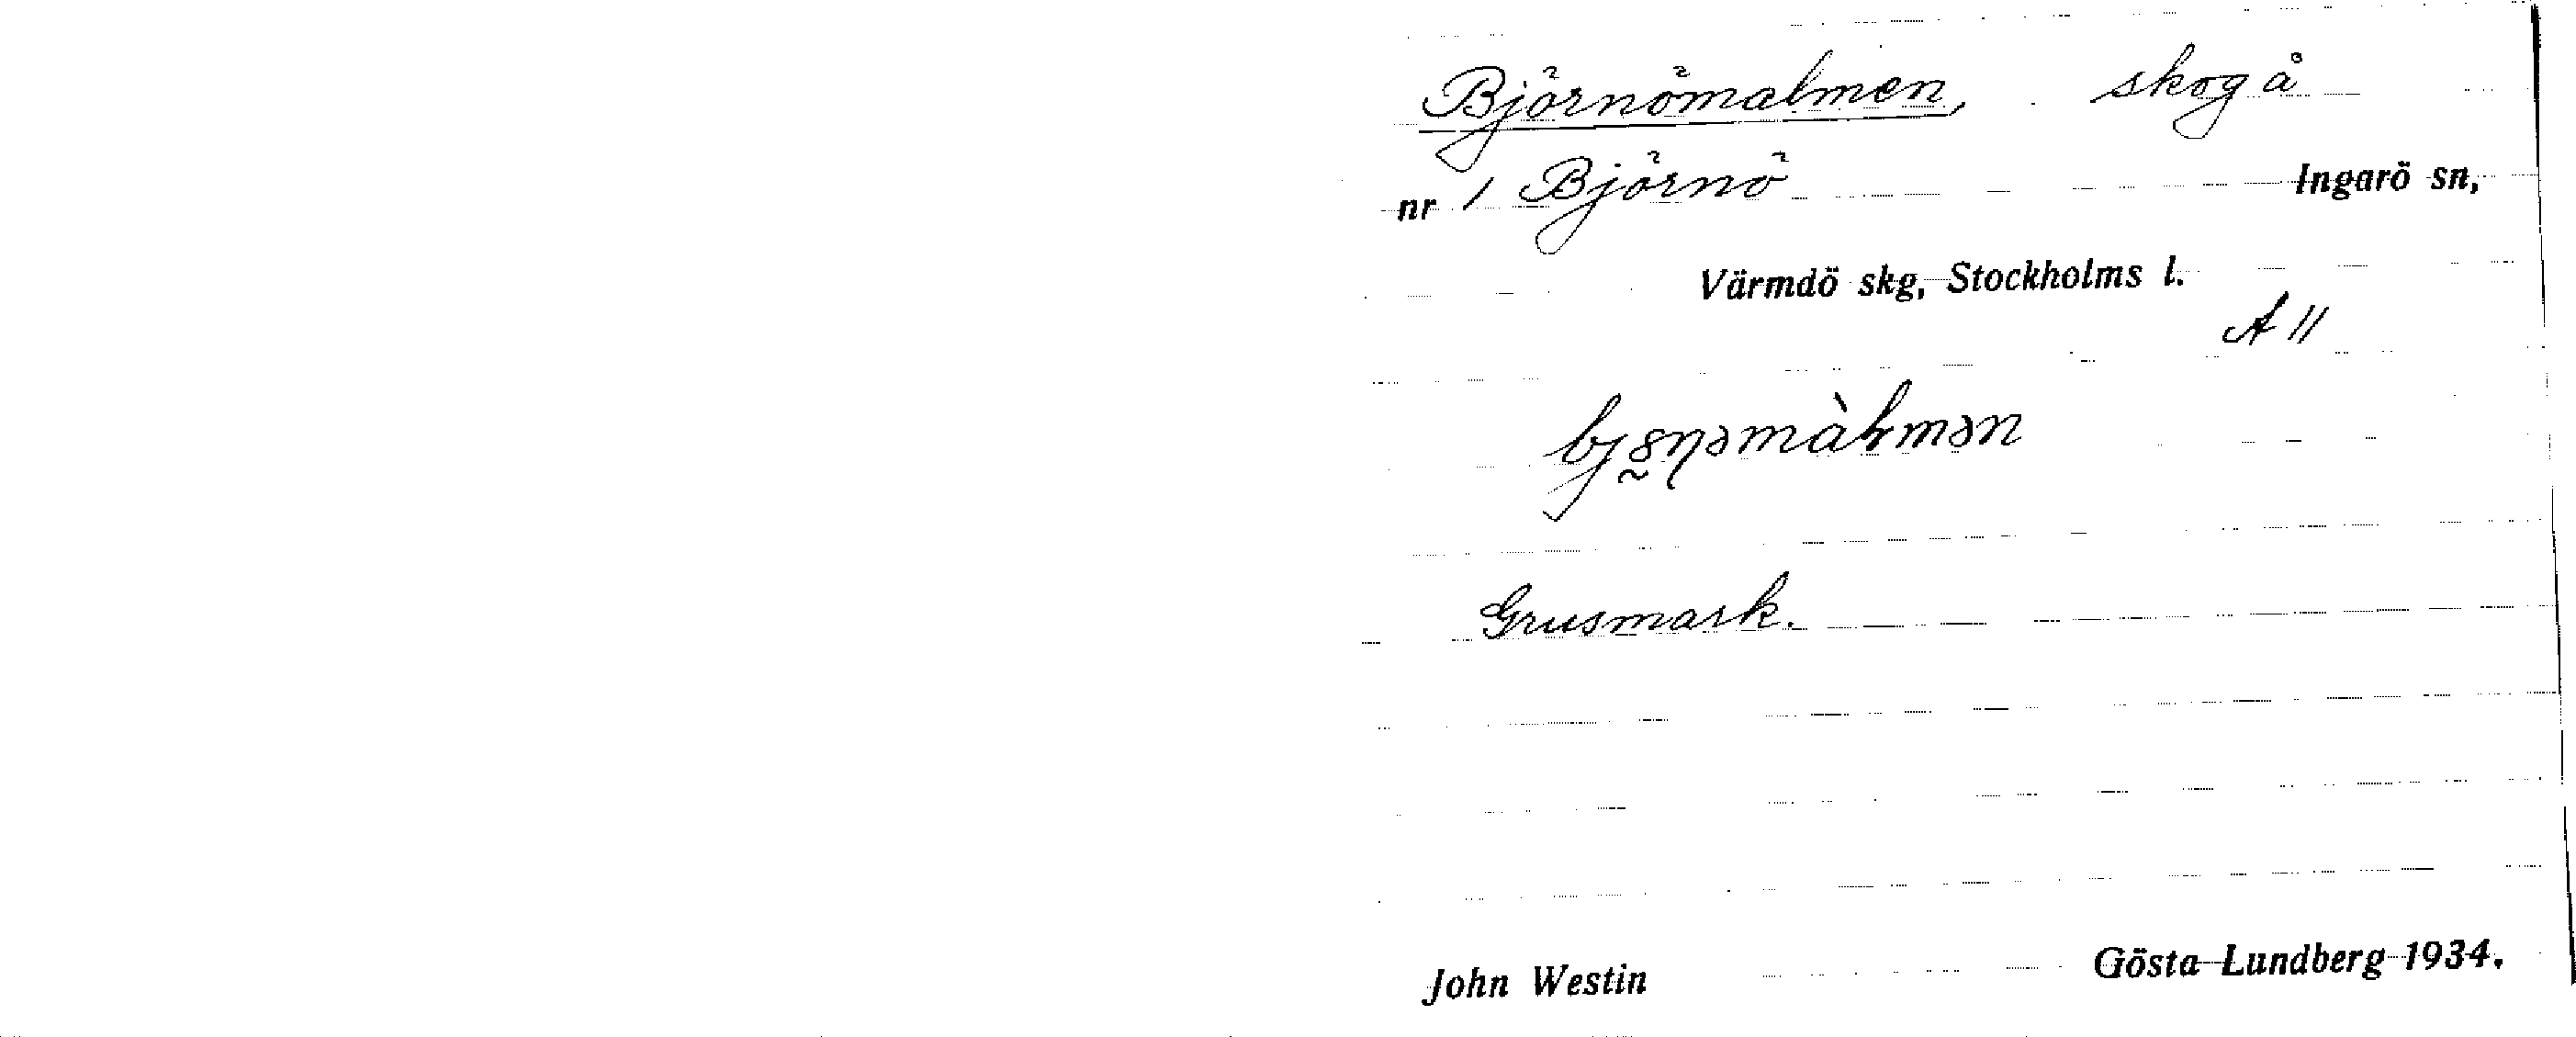 Björnömalmen, skog å
nr 1 Björnö Ingarö sn,
Värmdö skg, Stockholms l.
A 11
Grusmark.
John Westin Gösta Lundberg 1934.